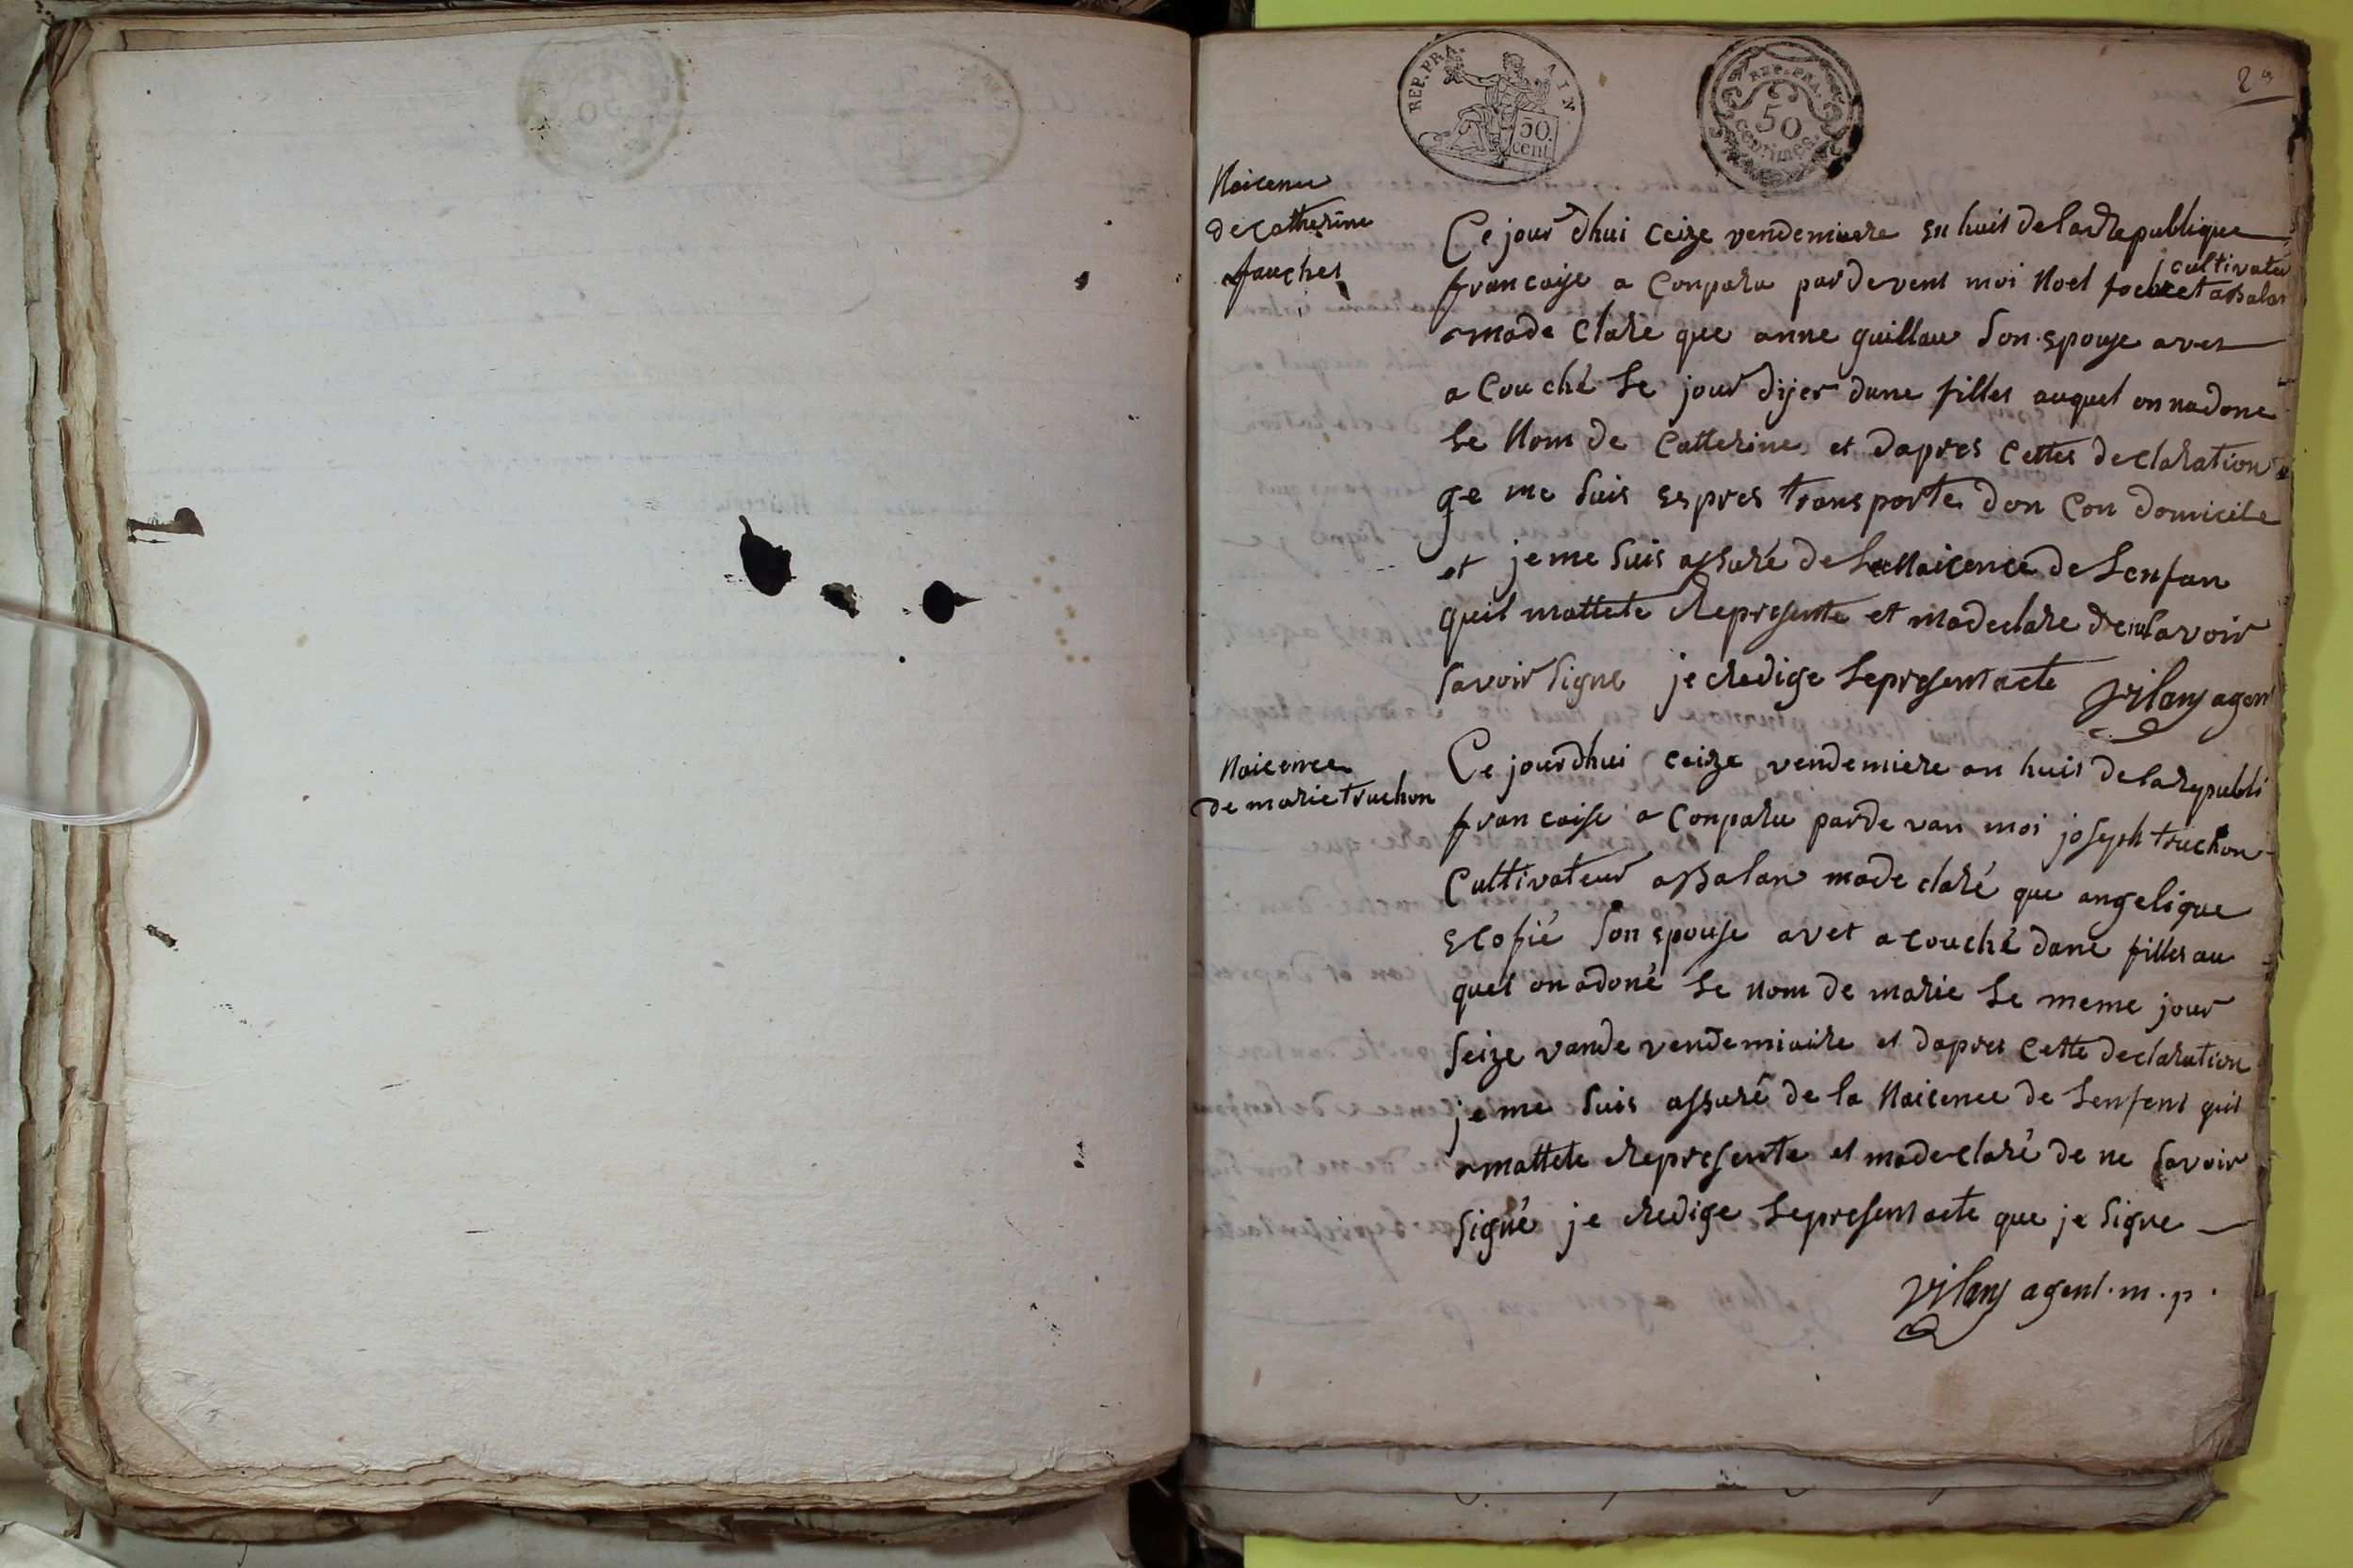 REP. FRA. 50. cent
REP. FRA. 50 centimes
Naicence
de catherine
fauchet
Ce jour dhui ceize vendemiere en huit de la Republique
francaise a Conparu pardevent moi Noel
cultivateur
assalan
ma de Clare que anne guillau son epouse avet
a Couché le jour dijer dune filles auquel on na done
le Nom de Catterine et dapres Cettes declaration
ge me suis espres transporte don Con domicile
et je me suis assuré de la Naicence de Lenfan
quil mattete Represente et madeclare de
savoir signe je Redige lepresent acte vilany agent
Naicence
de marie truchon
Ce jourdhui ceize vendemiere an huit de la republi
francaise a Conparu parde van moi joseph truchon
Cultivateur assalan made claré que angelique
escofié son epouse avet acouché dune filles au
quel on adoné le nom de marie le meme jour
seize vande vendemiaire et dapres Cette declaration
je me suis assuré de la Naicence de Lenfent quil
mattete Represente et madeclaré de ne savoir
signé je Redige lepresent acte que je signe
vilany agent. m. p.